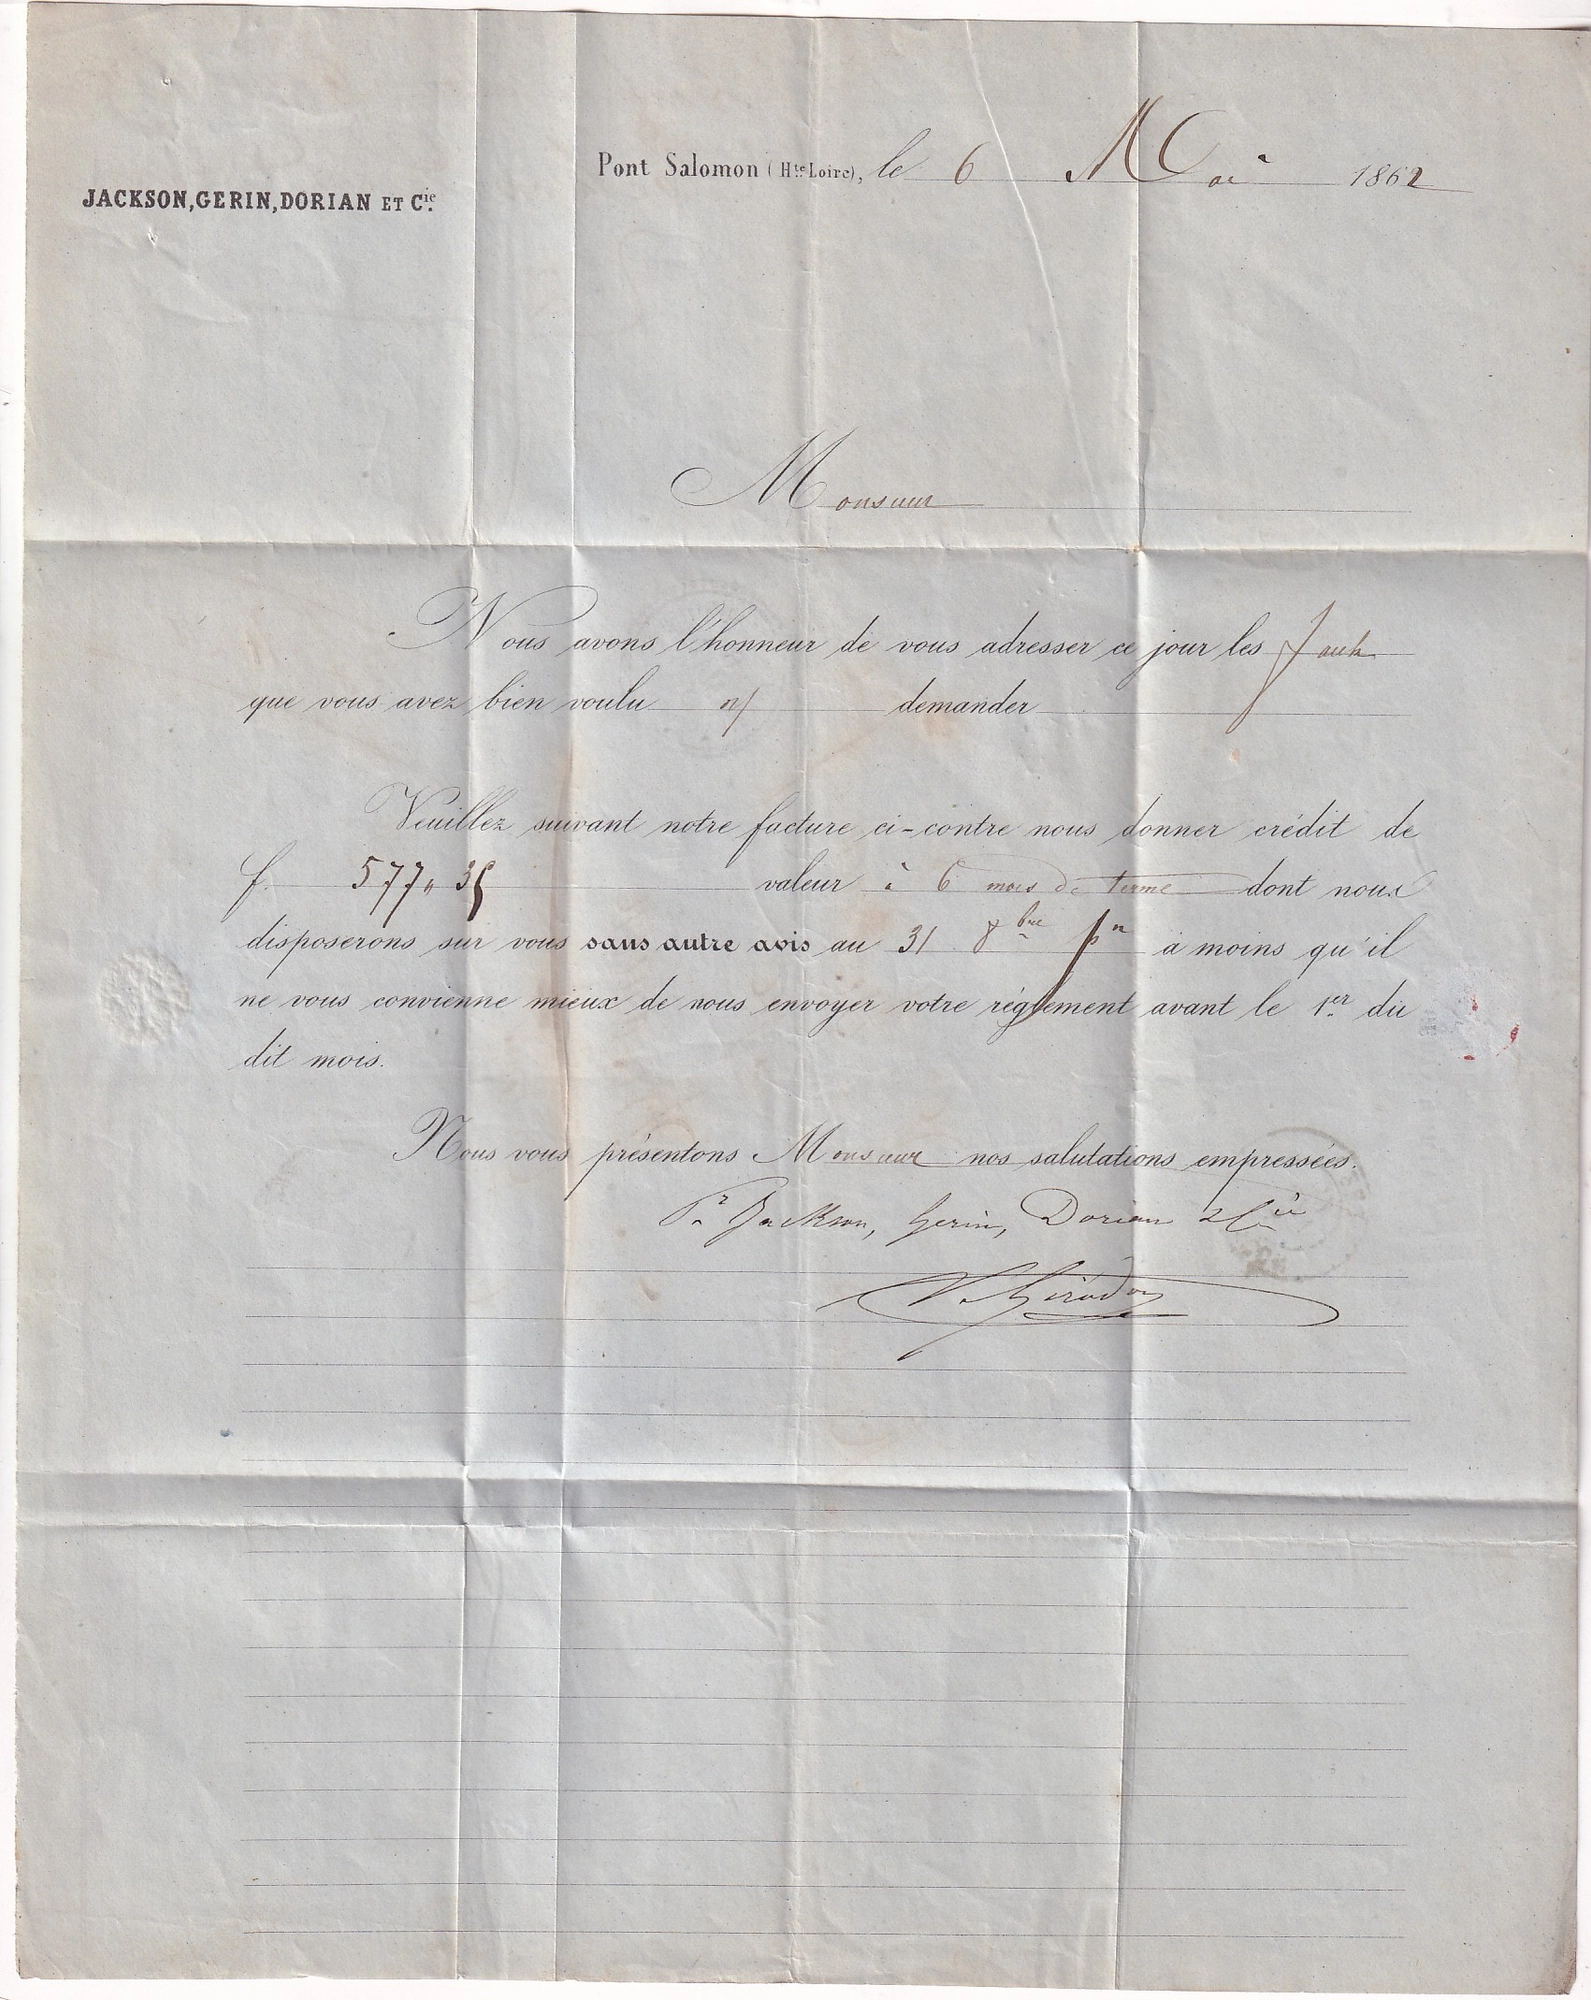 Pont Salomon (Hte Loire), le 6 Mai 1862
JACKSON, GERIN, DORIAN ET Cie.
Monsieur
Nous avons l'honneur de vous adresser ce jour les faulx
que vous avez bien voulu n/ demander
Veuillez suivant notre facture ci-contre nous donner crédit de
f. 577,, 35 valeur à 6 mois de terme dont nous
disposerons sur vous sans autre avis au 31 8bre pn à moins qu'il
ne vous convienne mieux de nous envoyer votre réglement avant le 1er du
dit mois.
Nous vous présentons Monsieur nos salutations empressées.
Pr Jackson, Gerin, Dorian & Cie